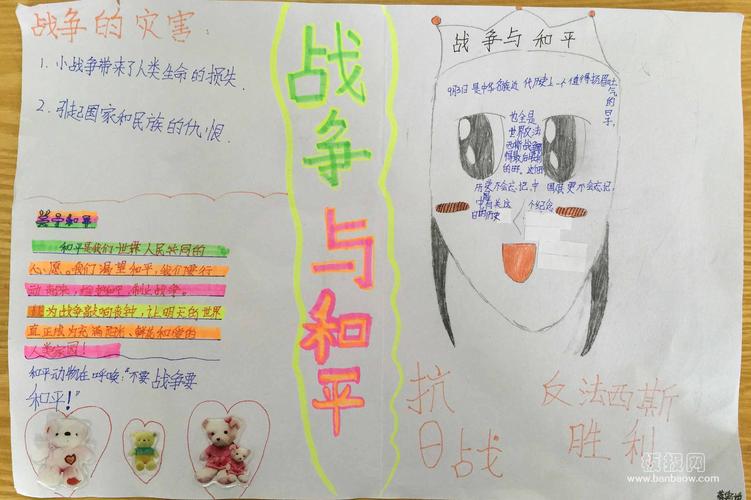 战争的灾害：
1. 小战争带来了人类生命的损失.
2. 引起国家和民族的仇恨.
和平
和平是我们世界人民共同的
心愿。我们渴望和平，我们要行
动起来，制止战争。
为战争敲响丧钟，让明天的世界
真正成为充满阳光、鲜花和爱的
人类家园！
和平动物在呼唤："不要战争要
和平！"
战争与和平
战争与和平
9月3日是中华民族近代历史上一个值得扬眉吐气的日子，
也全是
世界反法
西斯战争
历史不会忘记，中国更不会忘记，
个纪念
日的历史
抗日战
反法西斯
胜利
板报网
www.banbaow.com